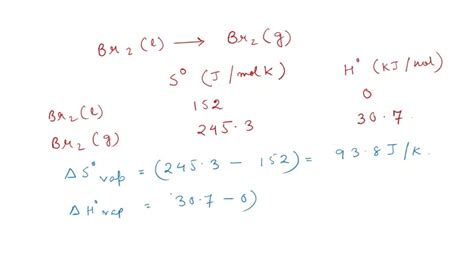 Br₂(l) ⟶ Br₂(g)
S° (J/mol K) H° (KJ/mol)
Br₂(l) 152 0
Br₂(g) 245.3 30.7
ΔS°vap = (245.3 − 152) = 93.8 J/K.
ΔH°vap = 30.7 − 0)